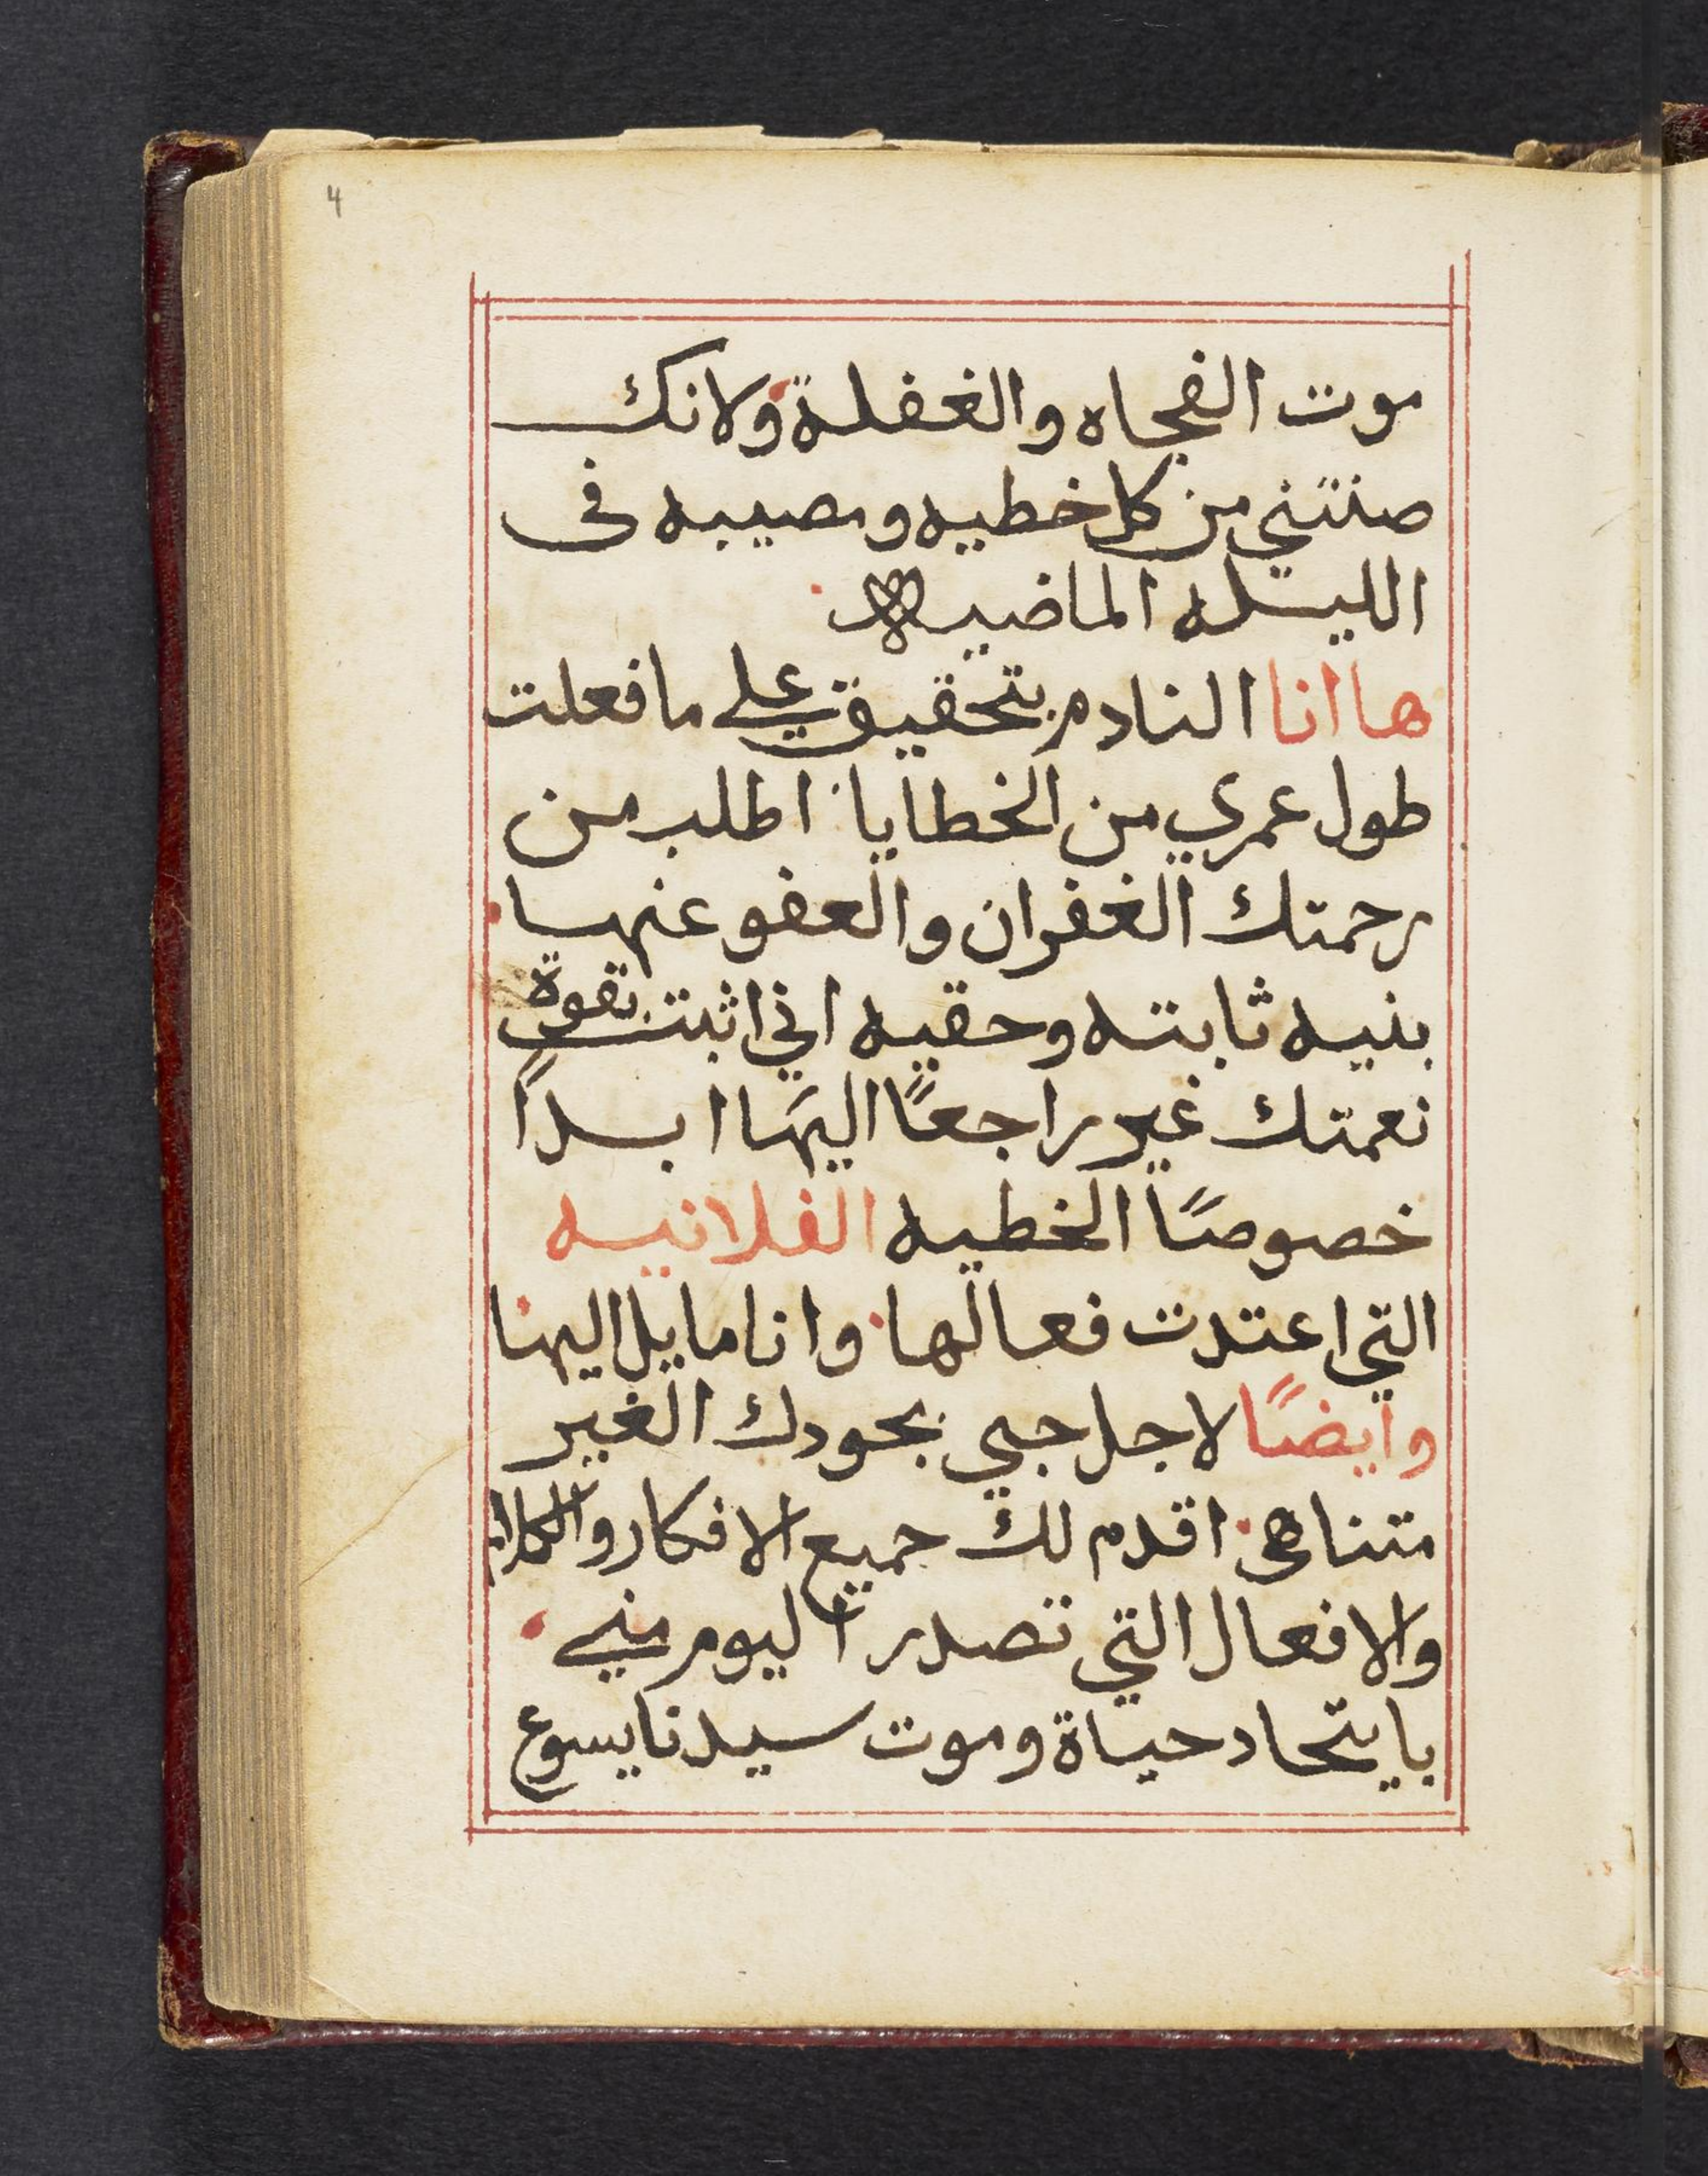 4
موت الفجاه والغفلة ولانك
صنتني من كل خطيه ومصيبه فى
الليله الماضيه
ها انا النادم بتحقيق علي ما فعلت
طول عمري من الخطايا اطلب من
رحمتك الغفران والعفو عنها
بنيه ثابته وحقيه اني اثبت بقوة
نعمتك غير راجعًا اليها ابدًا
خصوصًا الخطيه الفلانيه
التي اعتدت فعالها وانا مايل اليها
وايضًا لاجل حبي بجودك الغير
متناهى اقدم لك جميع الافكار والكلام
والافعال التي تصدر اليوم مني
بايتحاد حياة وموت سيدنا يسوع